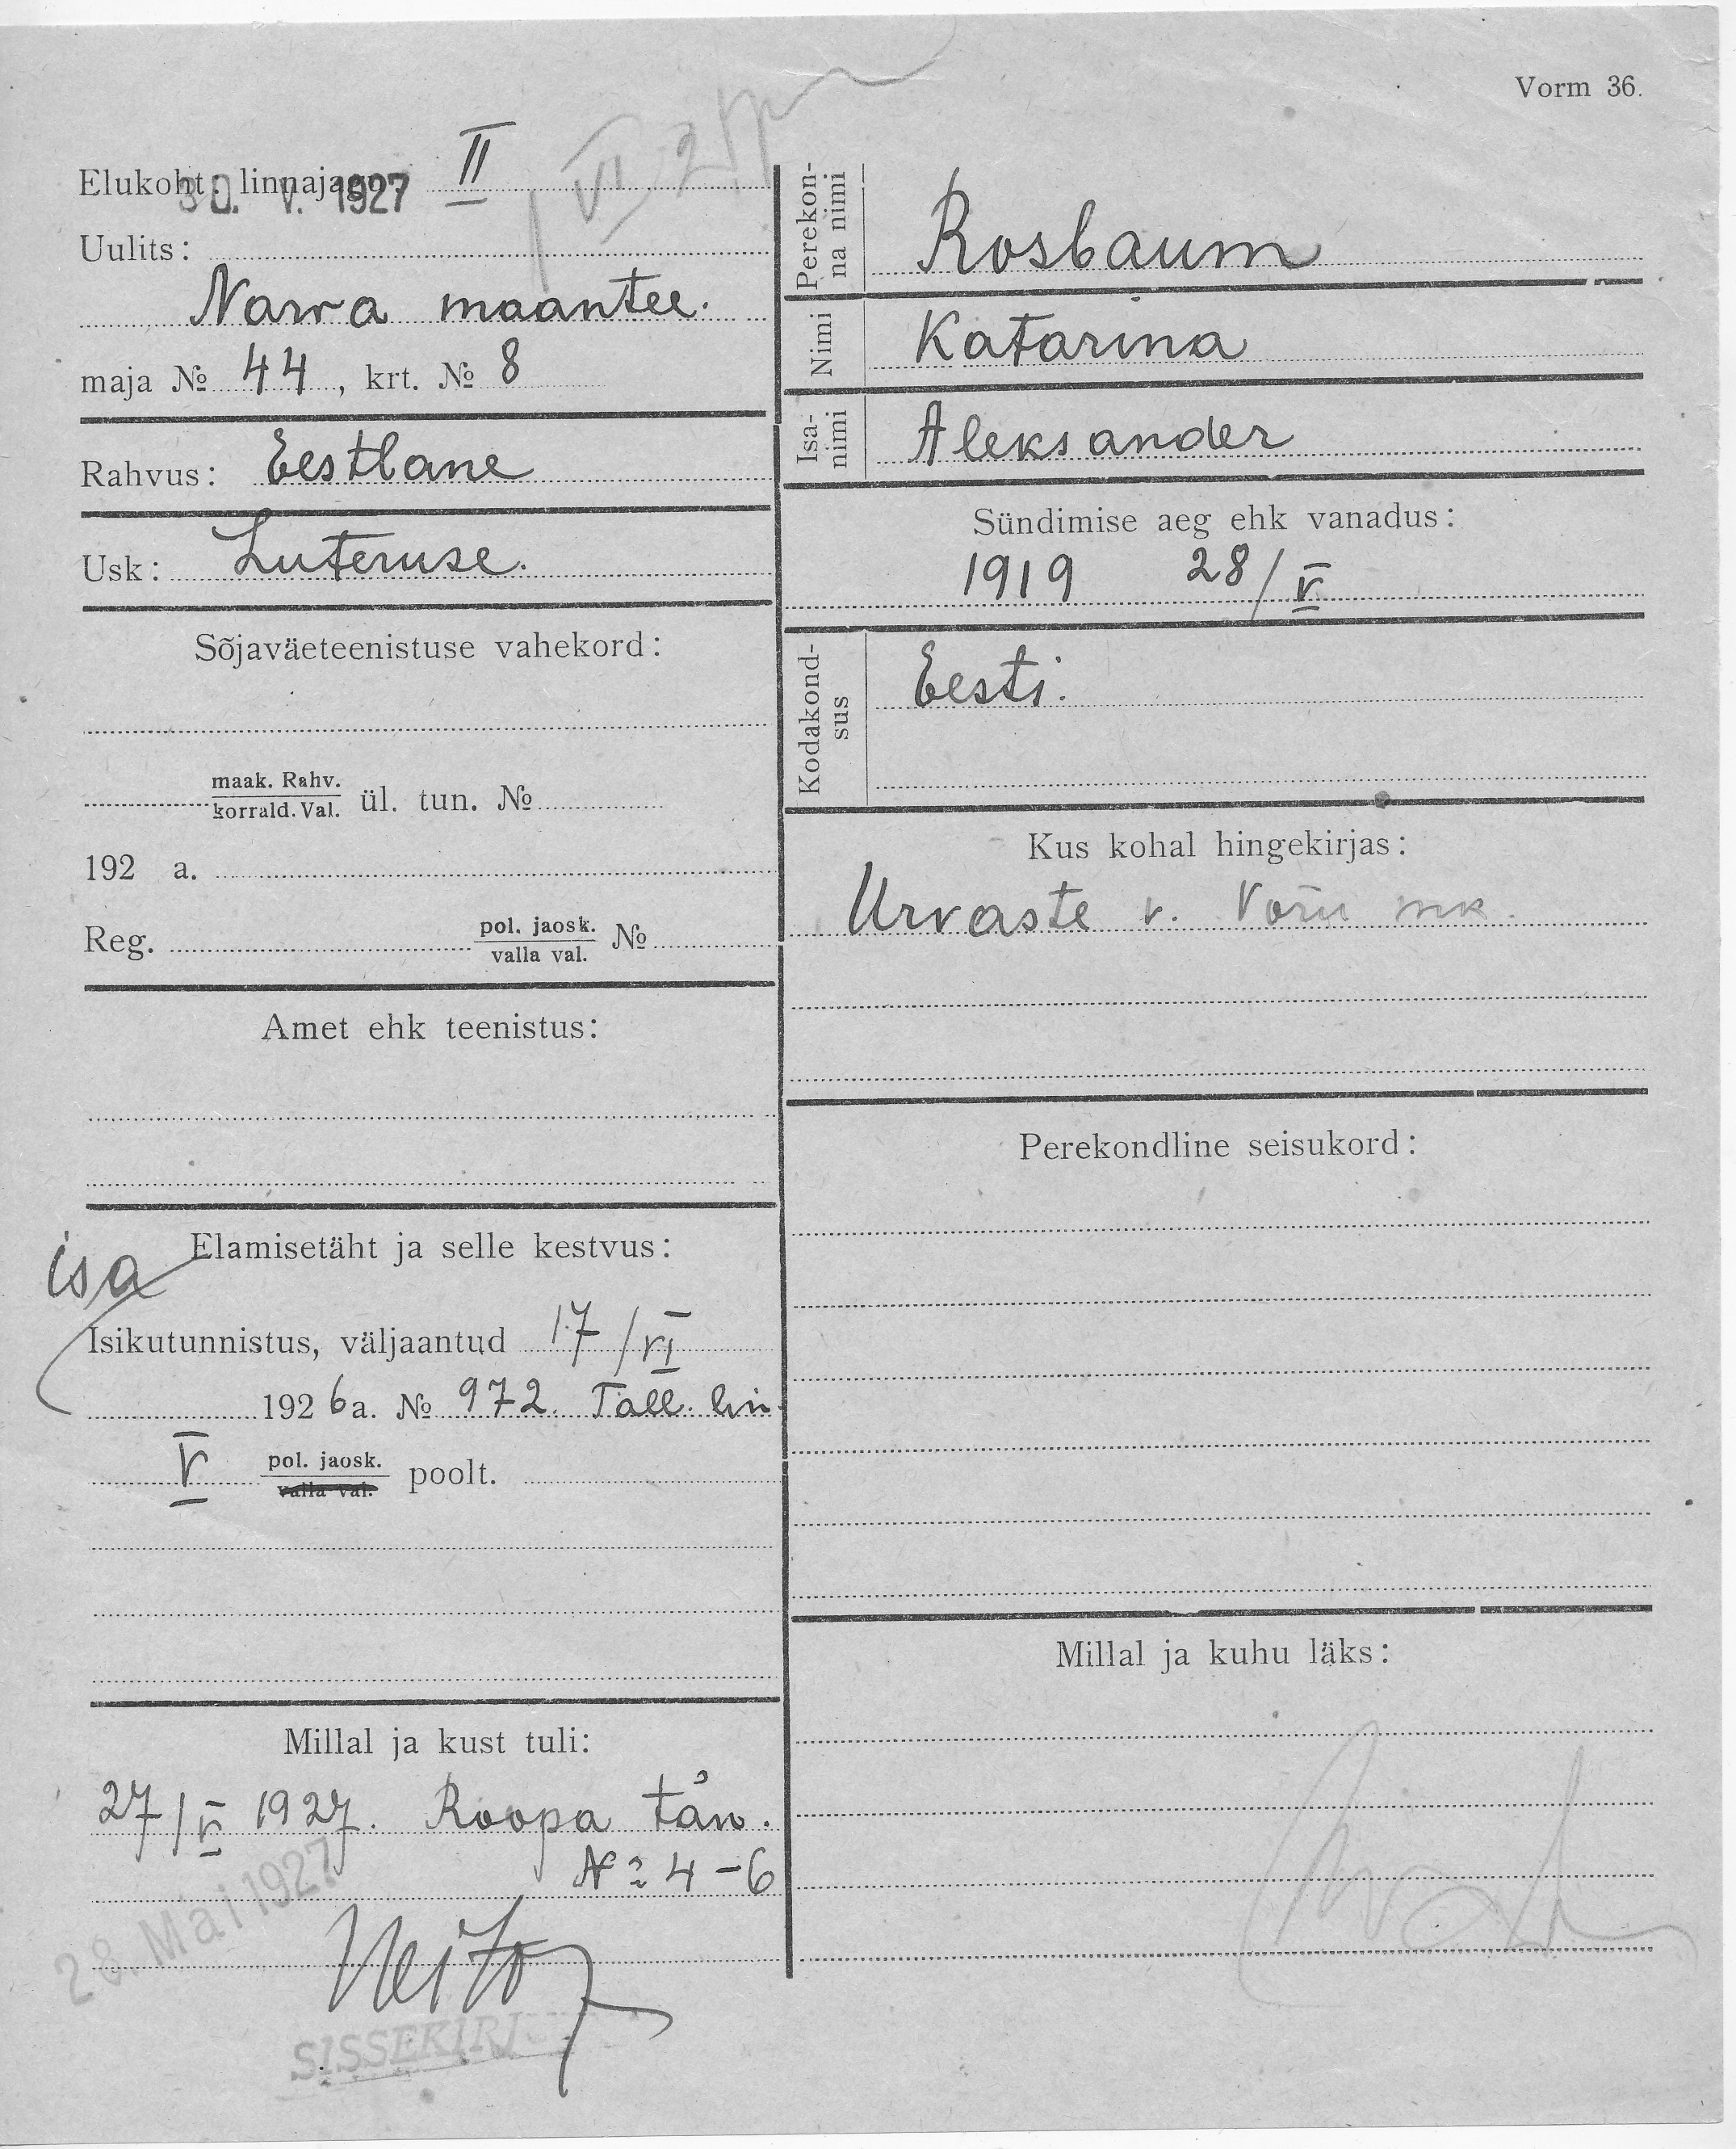 Vorm 36.
Elukoht: linnajagu II
30. V. 1927
Uulits:
Narva maantee.
maja № 44, krt. № 8
Rahvus: Eestlane
Usk: Luteruse.
Sõjaväeteenistuse vahekord:
maak. Rahv.
korrald. Val. ül. tun. №
192 a.
Reg. pol. jaosk. №
valla val.
Amet ehk teenistus:
isa
Elamisetäht ja selle kestvus:
Isikutunnistus, väljaantud 17/VI
1926 a. № 972. Tall. lin.
V pol. jaosk. poolt.
valla val.
Millal ja kust tuli:
27/V 1927. Roopa tän.
№ 4-6
28. Mai 1927
SISSEKIRJ
Perekon-
na nimi
Rosbaum
Nimi
Katarina
Isa-
nimi
Aleksander
Sündimise aeg ehk vanadus:
1919 28/V
Kodakond-
sus
Eesti.
Kus kohal hingekirjas:
Urvaste v. Võru mk.
Perekondline seisukord:
Millal ja kuhu läks: